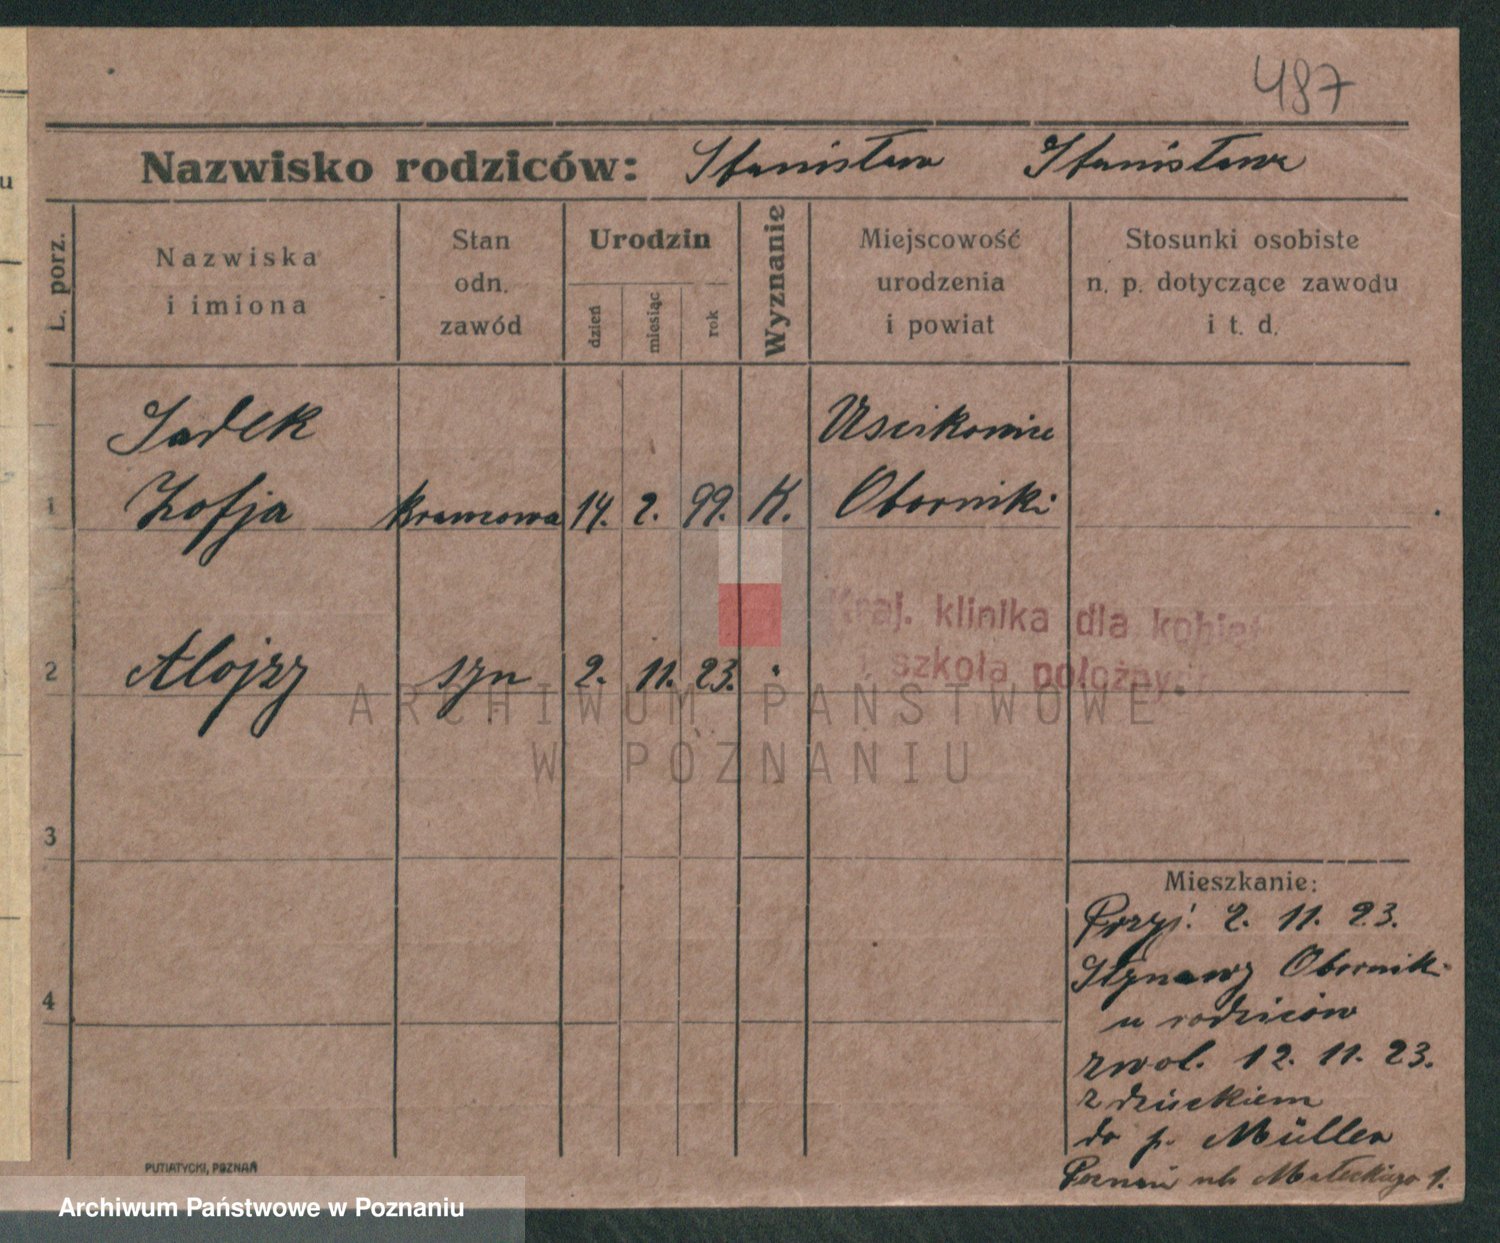 487
Nazwisko rodziców: Stanisław Stanisława
L. porz.
Nazwiska
i imiona
Stan
odn.
zawód
Urodzin
dzień
miesiąc
rok
Wyznanie
Miejscowość
urodzenia
i powiat
Stosunki osobiste
n. p. dotyczące zawodu
i t. d.
u
Sadek Uscikowice
1 Zofja krawcowa 14. 2. 99. K. Oborniki
Kraj. klinika dla kobiet
i szkoła położnych
2 Alojzy syn 2. 11. 23. "
ARCHIWUM PAŃSTWOWE
W POZNANIU
3
Mieszkanie:
Przyj. 2. 11. 23.
Oborniki
4
u rodziców
zwol. 12. 11. 23.
z dzieckiem
do p. Müller
Poznań ul. Małeckiego 1.
PUTIATYCKI, POZNAŃ
Archiwum Państwowe w Poznaniu